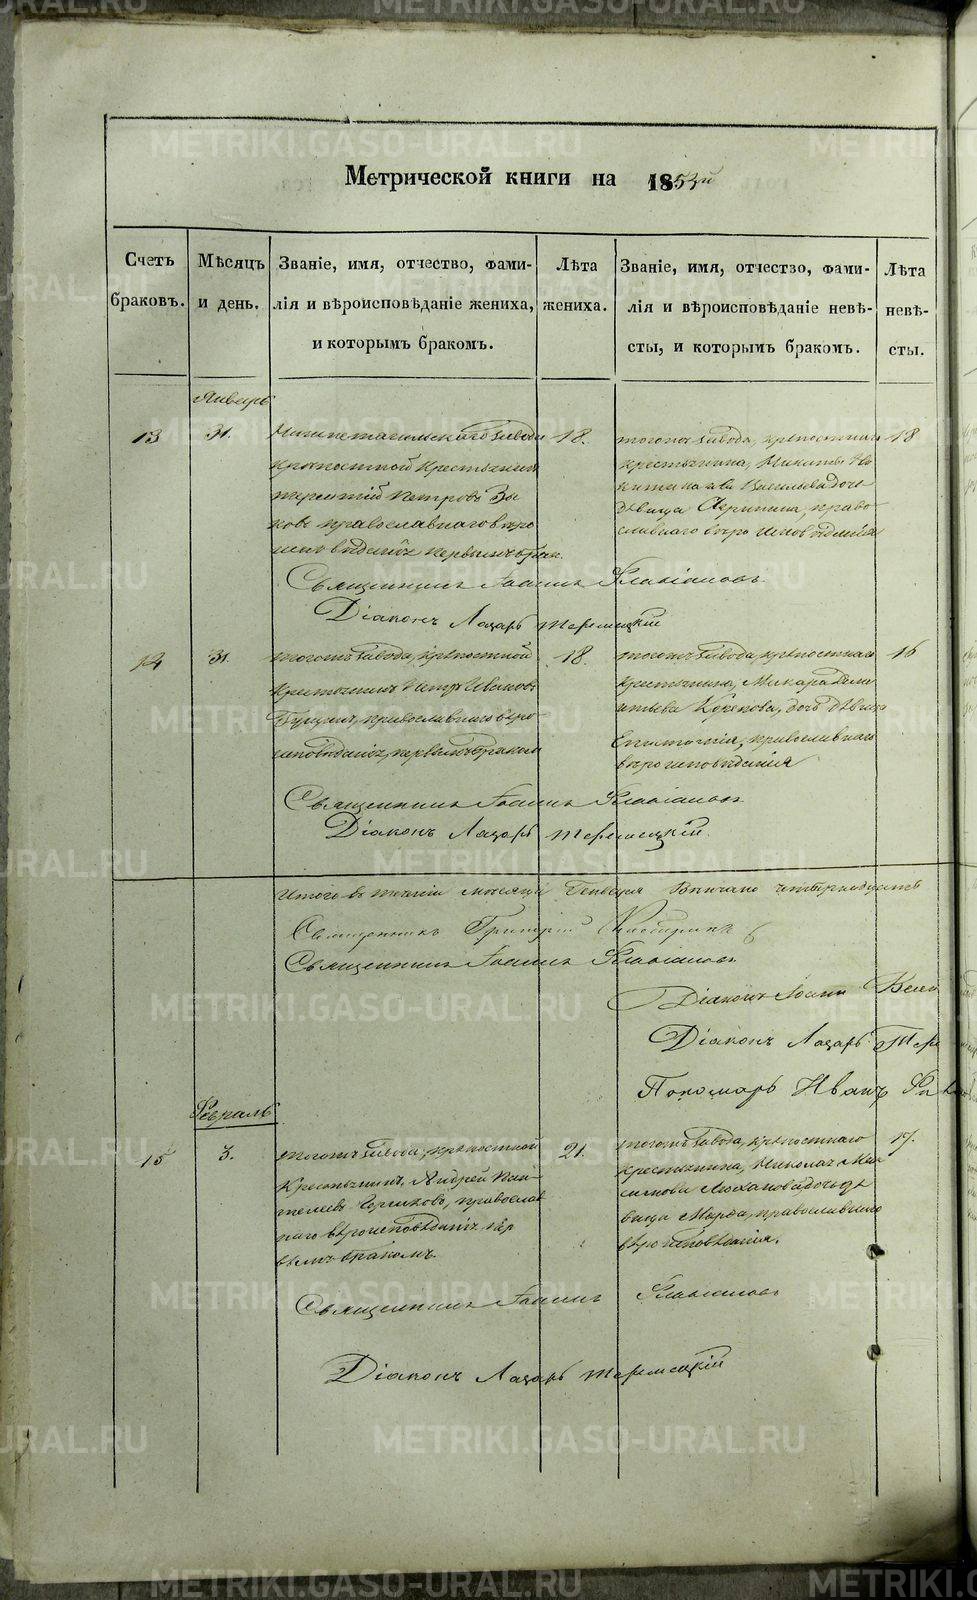 Метрической книги на 1853й
Счетъ браковъ.
Мѣсяцъ и день.
Званіе, имя, отчество, фами-
лія и вѣроисповѣданіе жениха,
и которымъ бракомъ.
Лѣта
жениха.
Званіе, имя, отчество, фами-
лія и вѣроисповѣданіе невѣ-
сты, и которымъ бракомъ.
Лѣта
невѣ-
сты.
Январь
13
31.
Нижнетагильскаго завода
крѣпостной крестьянинъ
Терентій Петровъ Зы
ковъ православнаго вѣро
исповѣданія первымъ бракомъ
18.
тогожъ завода, крѣпостнаго
крестьянина, Никиты
Васильева дочь
дѣвица право-
славнаго вѣроисповѣданія
18
Священникъ Іоаннъ Флавіановъ
Діаконъ Лазарь
14
31.
тогожъ завода, крѣпостной
крестьянинъ Петръ Ивановъ
православнаго вѣро-
исповѣданія, первымъ бракомъ
18.
тогожъ завода, крѣпостнаго
крестьянина, Макара Дмит
дочь дѣвица
православнаго
вѣроисповѣданія
16
Священникъ Іоаннъ Флавіановъ
Діаконъ Лазарь
Итого въ теченіи мѣсяца Генваря вѣнчано четырнадцать
Священникъ Григорій
Священникъ Іоаннъ Флавіановъ
Діаконъ Іоаннъ
Діаконъ Лазарь
Пономарь Иванъ
Февраль
15
3.
тогожъ завода, крѣпостной
крестьянинъ, Андрей Пан-
телеевъ православ
наго вѣроисповѣданія, пер
вымъ бракомъ.
21.
тогожъ завода, крѣпостнаго
крестьянина, Николая Мак
симова дочь дѣ
вица Марѳа, православнаго
вѣроисповѣданія.
17.
Священникъ Іоаннъ Флавіановъ
Діаконъ Лазарь
METRIKI.GASO-URAL.RU